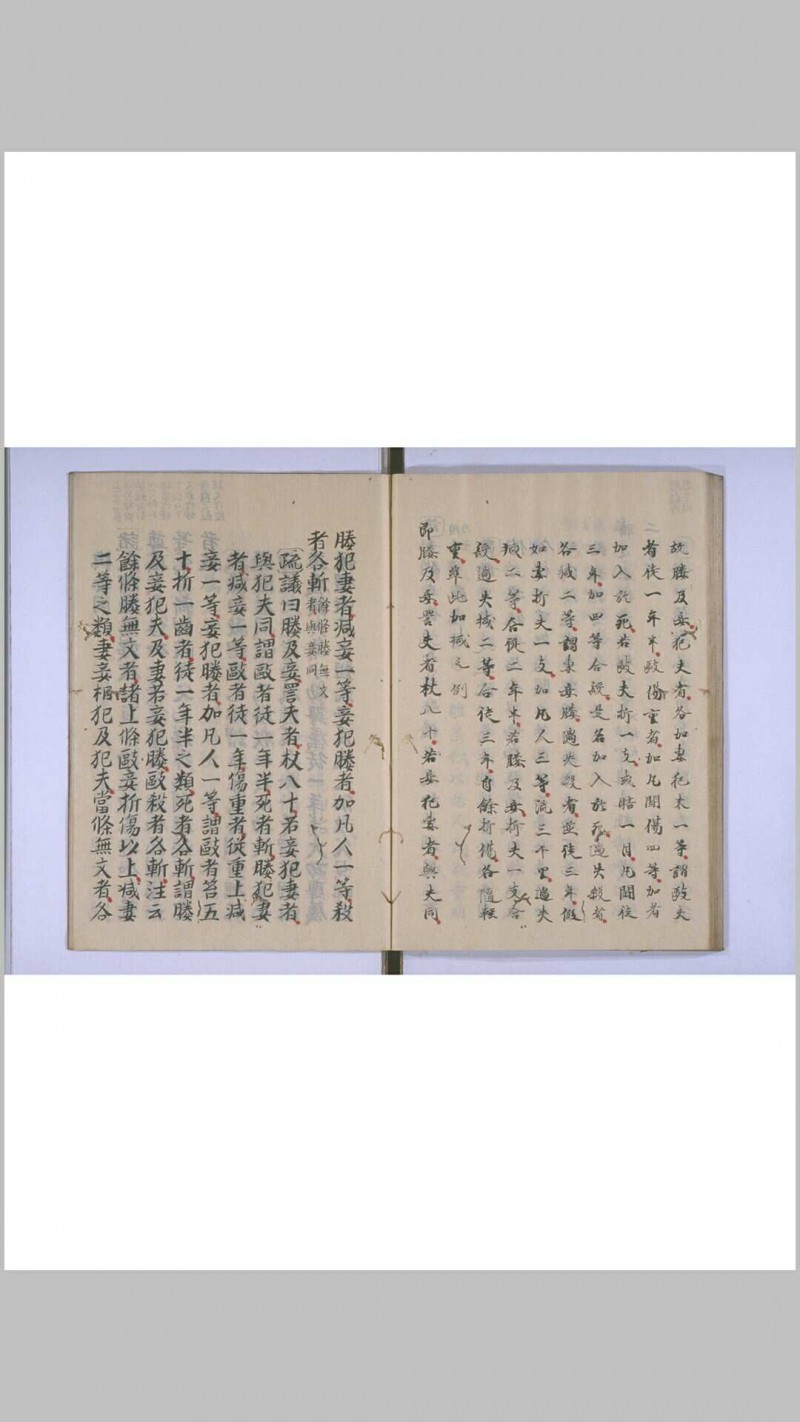 故媵及妾犯夫者各加妻犯夫一等謂毆夫
者徒一年半毆傷重者加凡鬪傷四等加者
加入於死若毆夫折一支或瞎一目凡鬪徒
三年加四等合絞是名加入於死過失殺者
各減二等謂妻妾媵過失殺者並徒三年假
如妻折夫一支加凡人三等流三千里過失
減二等合徒二年半若媵及妾折夫一支合
絞過失減二等合徒三年自餘折傷各隨輕
重准此加減之例
即媵及妾詈夫者杖八十若妾犯妻者與夫同
媵犯妻者減妾一等妾犯媵者加凡人一等殺
者各斬餘條媵無文者與妾同
疏議曰媵及妾詈夫者杖八十若妾犯妻者
與犯夫同謂毆者徒一年半死者斬媵犯妻
者減妾一等毆者徒一年傷重者從重上減
妾一等妾犯媵者加凡人一等謂毆者笞五
十折一齒者徒一年半之類死者各斬謂媵
及妾犯夫及妻若妾犯媵毆殺者各斬注云
餘條媵無文者諸上條毆妾折傷以上減妻
二等之類妻妾相犯及犯夫當條無文者各